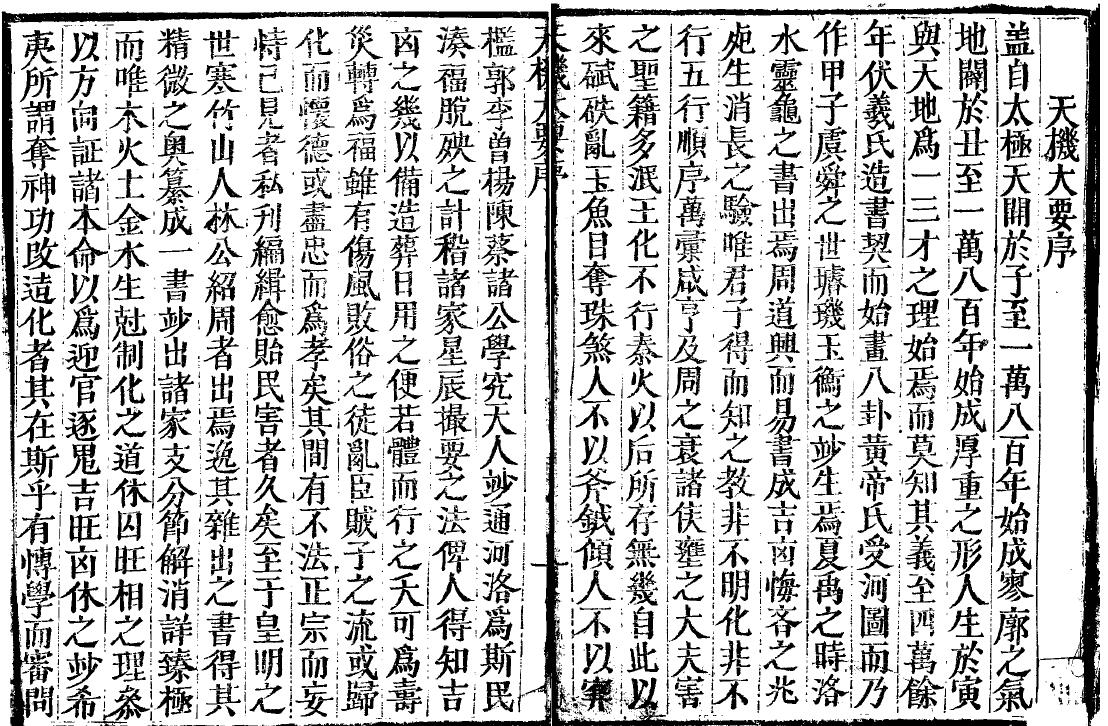 天機大要序
蓋自太極天開於子至一萬八百年始成寥廓之氣
地闢於丑至一萬八百年始成厚重之形人生於寅
與天地爲一三才之理始焉而莫知其義至四萬餘
年伏羲氏造書契而始畫八卦黃帝氏受河圖而乃
作甲子虞舜之世璿璣玉衡之妙生焉夏禹之時洛
水靈龜之書出焉周道興而易書成吉凶悔吝之兆
死生消長之驗唯君子得而知之教非不明化非不
行五行順序萬彙咸亨及周之衰諸侯壅之大夫害
之聖籍多泯王化不行秦火以后所存無幾自此以
來碔砆亂玉魚目奪珠煞人不以斧鉞傾人不以穽
天機大要序
檻郭李曾楊陳蔡諸公學究天人妙通河洛爲斯民
湊福脫殃之計稽諸家星辰撮要之法俾人得知吉
凶之幾以備造葬日用之便若體而行之夭可爲壽
災轉爲福雖有傷風敗俗之徒亂臣賊子之流或歸
化而懷德或盡忠而爲孝矣其間有不法正宗而妄
恃己見者私刋編緝愈貽民害者久矣至于皇明之
世寒竹山人林公紹周者出焉逸其雜出之書得其
精微之奧纂成一書妙出諸家支分節解消詳臻極
而唯木火土金水生尅制化之道休囚旺相之理叅
以方向証諸本命以爲迎官逐鬼吉旺凶休之妙希
夷所謂奪神功改造化者其在斯乎有愽學而審問